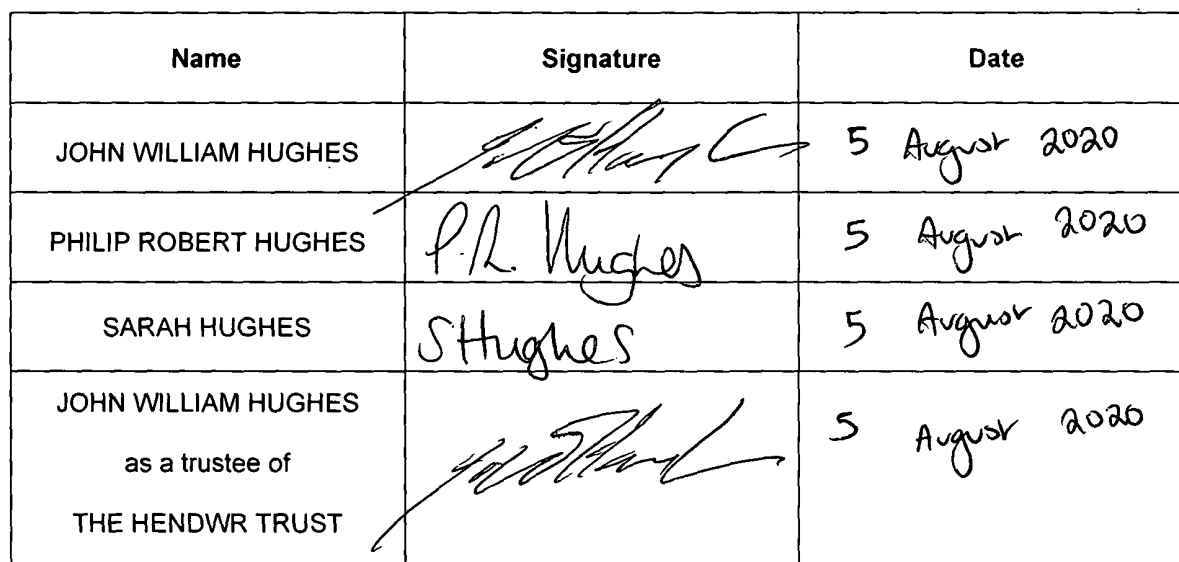 Name Signature Date
JOHN WILLIAM HUGHES 5 August 2020
PHILIP ROBERT HUGHES P.R. Hughes 5 August 2020
SARAH HUGHES SHughes 5 August 2020
JOHN WILLIAM HUGHES 5 August 2020
as a trustee of
THE HENDWR TRUST